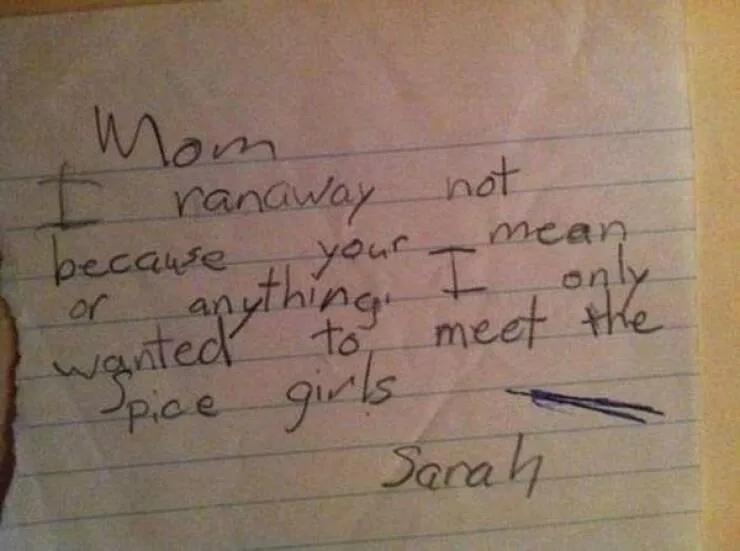 Mom
I ranaway not
because your mean
or anything. I only
wanted to meet the
Spice girls
Sarah